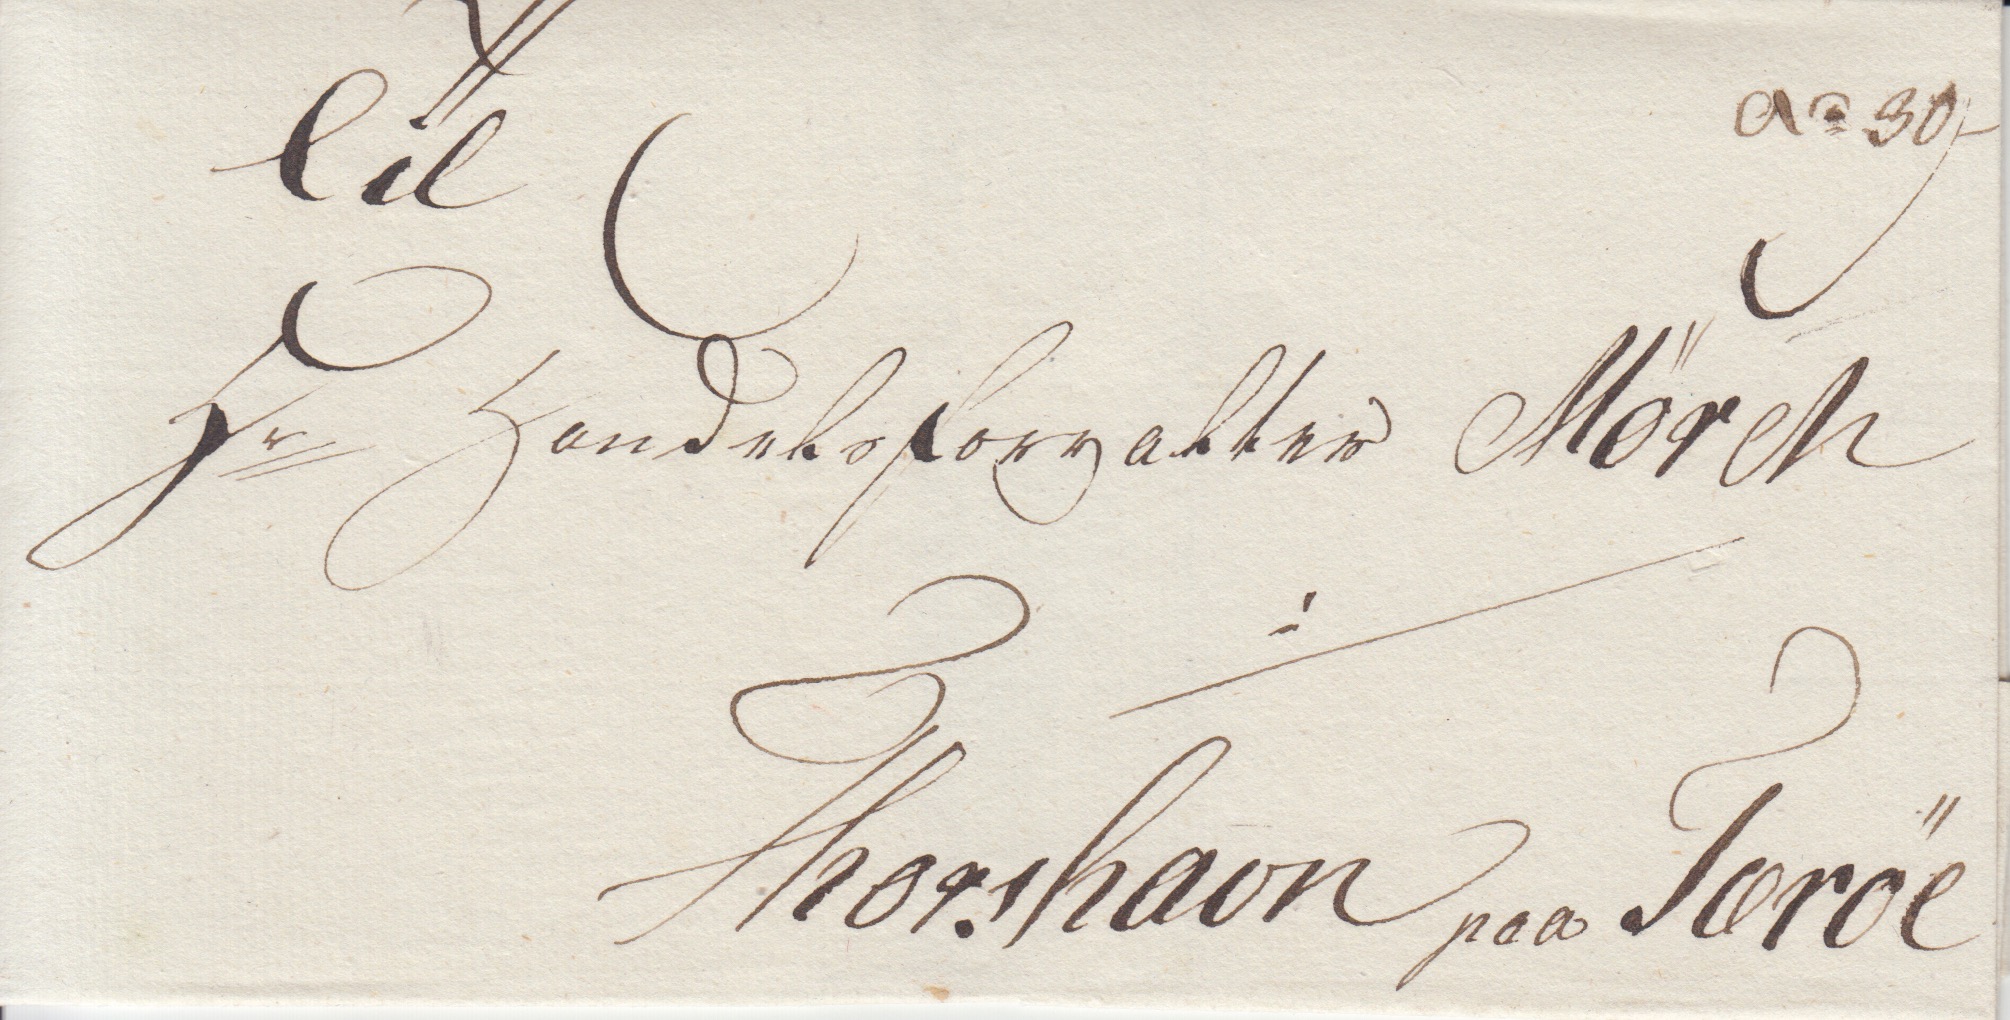 Til
Hr Handelsforvalter Mörch
i
Thorshavn paa Færöe